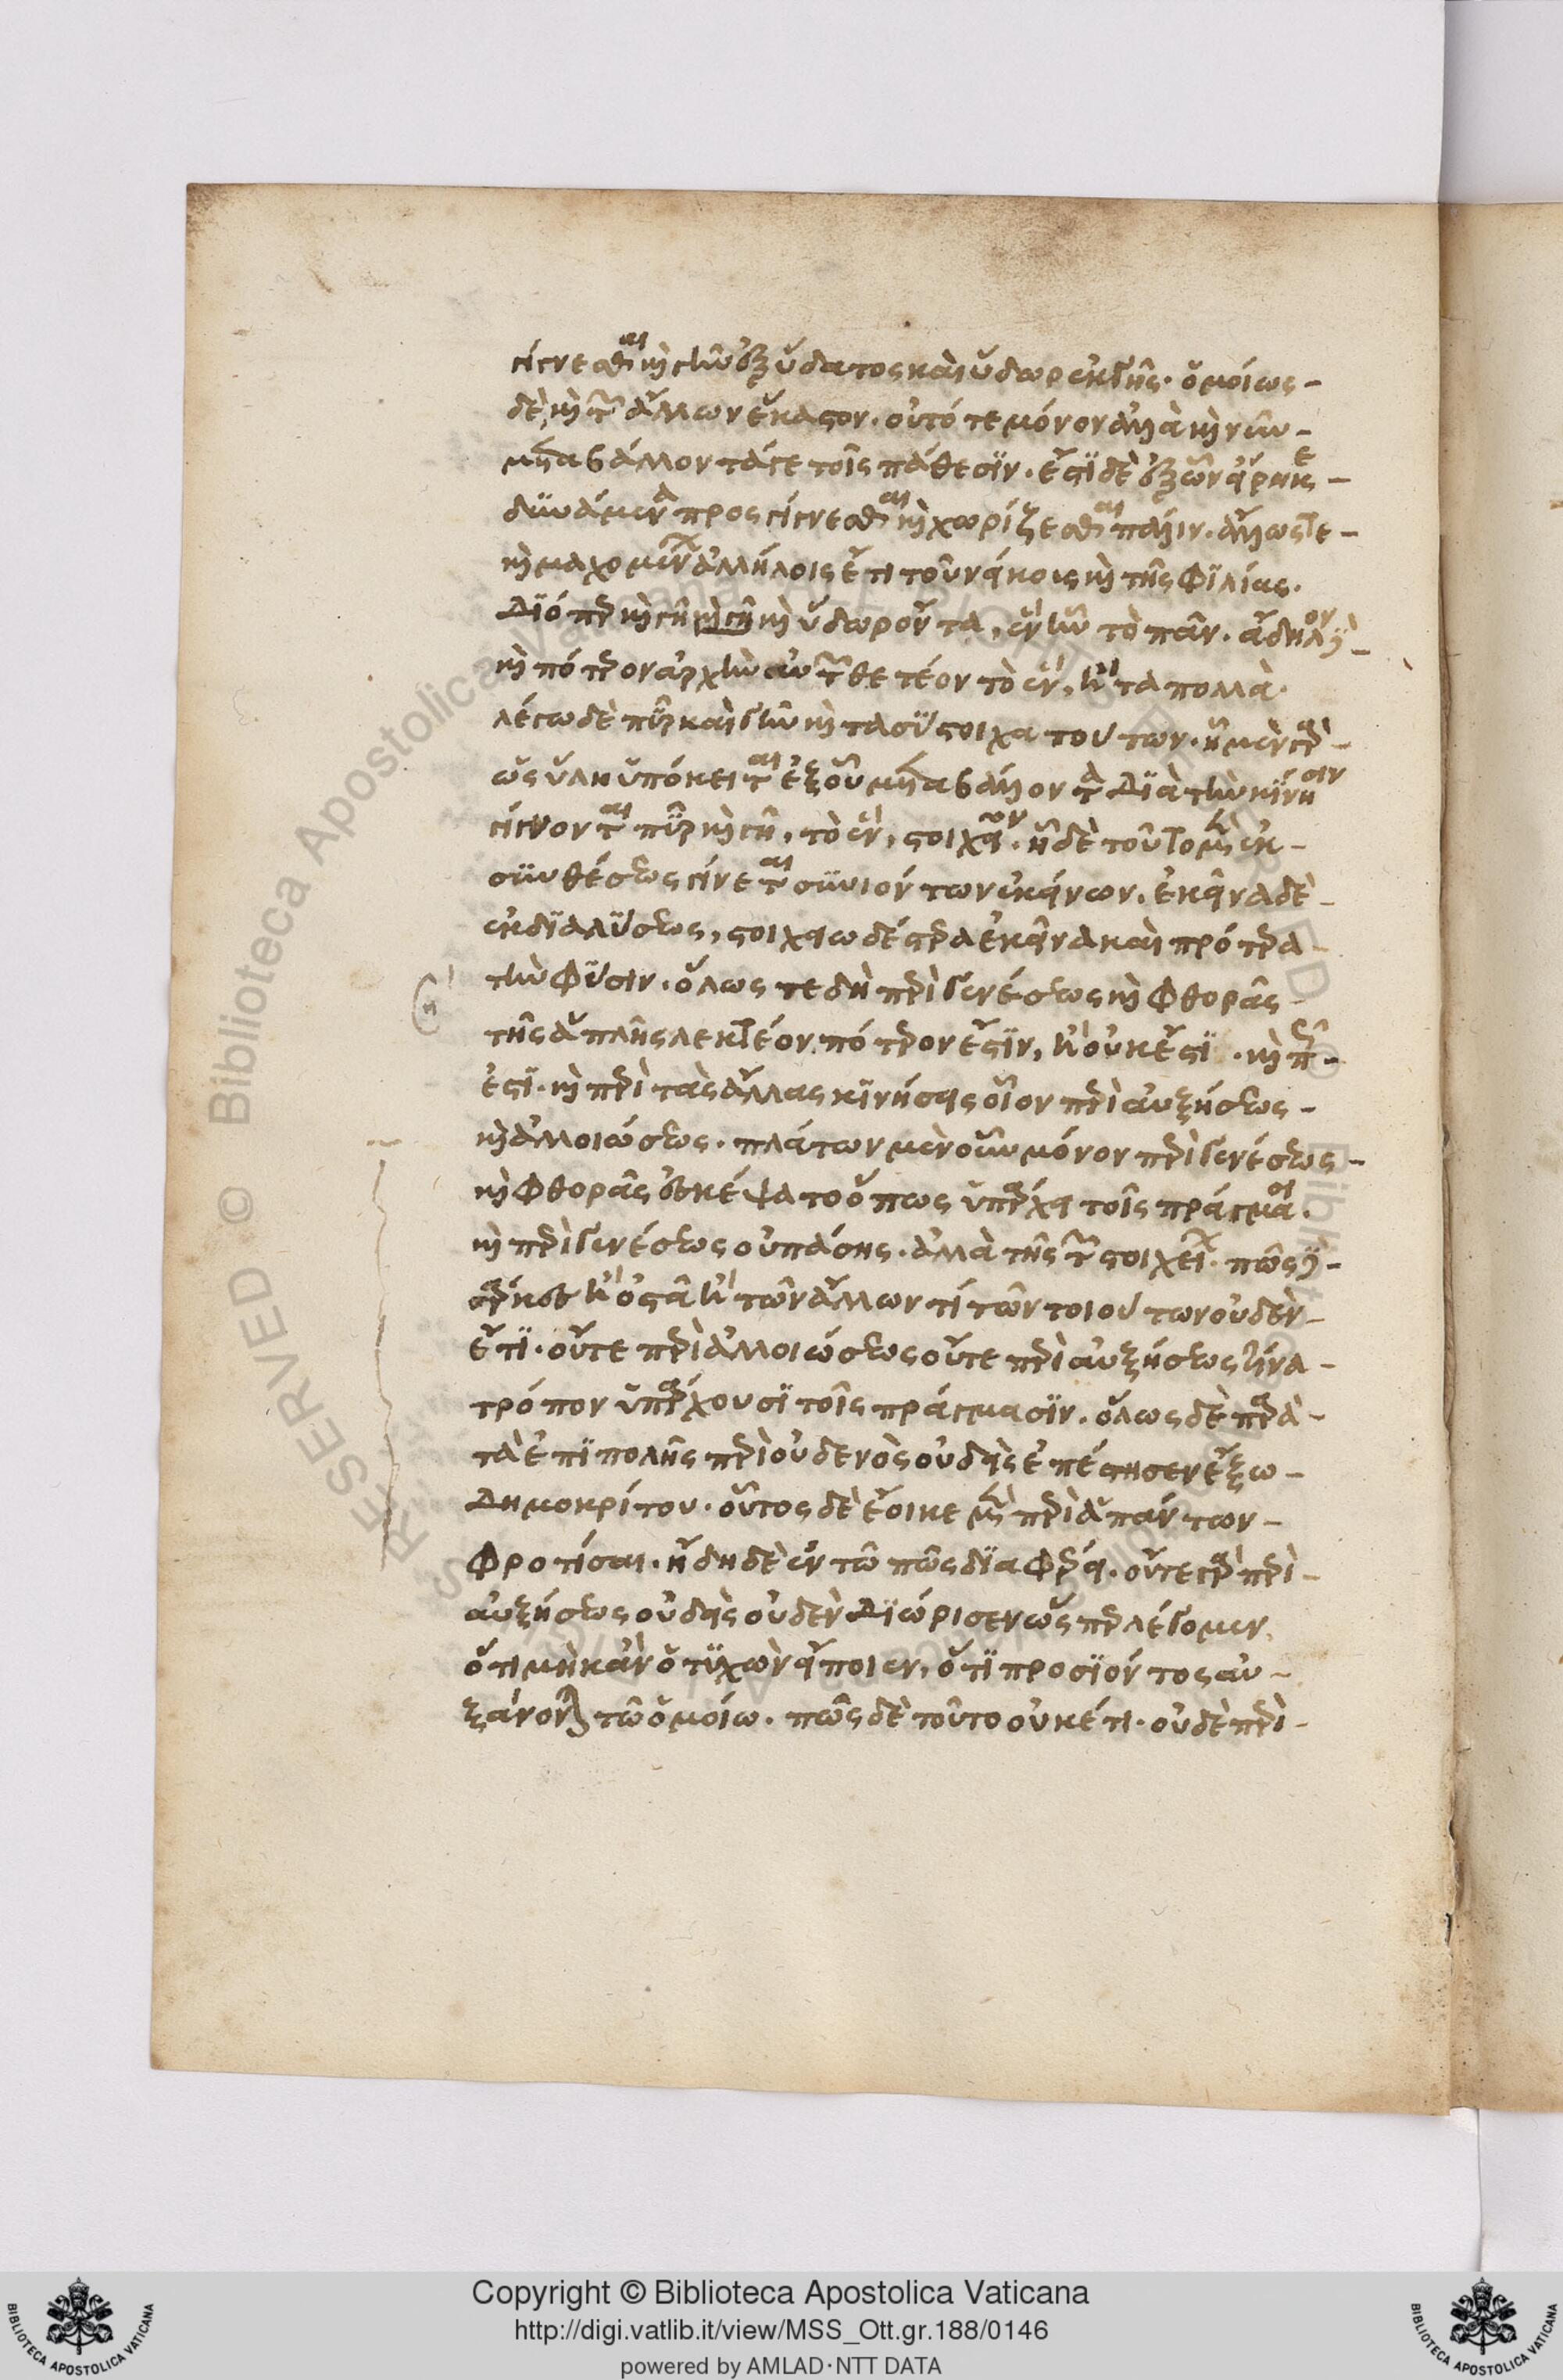 γίγνεσθαι καὶ γῆν ἐξ ὕδατος καὶ ὕδωρ ἐκ γῆς. ὁμοίως -
δὲ καὶ τῶν ἄλλων ἕκαστον. οὐ τότε μόνον ἀλλὰ καὶ νῦν -
μεταβάλλοντά γε τοῖς πάθεσϊν. ἔστϊ δὲ ἐξ ὧν εἴρηκε -
δϋνάμενα προσγίγνεσθαι καὶ χωρίζεσθαι πάλιν. ἄλλως τε -
καὶ μαχομένων ἀλλήλοις ἔτι τοῦ νείκους καὶ τῆς φϊλίας.
Διόπερ καὶ γῆ καὶ γῆ καὶ ὕδωρ ὄντα, ἓν ἦν τὸ πᾶν. ἄδηλον δὲ -
καὶ πότερον ἀρχὴν αὐτῶν θετέον τὸ ἓν, ἢ τὰ πολλὰ.
λέγω δὲ πῦρ καὶ γῆν καὶ τὰ σϋστοιχα τούτων. ἧ μὲν γὰρ -
ὡς ὕλη ὑπόκειται ἐξ οὗ μεταβάλλοντα Δϊὰ τὴν κίνησιν
γίγνονται πῦρ καὶ γῆ, τὸ ἓν, στοιχεῖον. ἧ δὲ τοῦτο μὲν ἐκ -
σϋνθέσεως γίνεται σϋνιόντων ἐκείνων. ἐκεῖνα δὲ -
ἐκ δϊαλύσεως, στοιχειωδέστερα ἐκεῖνα καὶ πρότερα -
η΄
τὴν φύσιν. ὅλως τε δὴ περὶ γενέσεως καὶ φθορᾶς -
τῆς ἁπλῆς λεκτέον. πότερον ἔστϊν, ἢ οὐκ ἔστϊ. καὶ πῶς -
ἐστϊ. καὶ περὶ τὰς ἄλλας κϊνήσεις οἷον περὶ αὐξήσεως -
καὶ ἀλλοιώσεως. πλάτων μὲν οὖν μόνον περὶ γενέσεως -
καὶ φθορᾶς ἐσκέψατο ὅπως ὑπάρχει τοῖς πράγμασι.
καὶ περὶ γενέσεως οὐ πάσης. ἀλλὰ τῆς τῶν στοιχείων. πῶς δὲ -
σάρκες ἢ ὀστᾶ ἢ τῶν ἄλλων τί τῶν τοιούτων οὐδὲν -
ἔτϊ. οὔτε περὶ ἀλλοιώσεως οὔτε περὶ αὐξήσεως τίνα -
τρόπον ὑπάρχουσϊ τοῖς πράγμασϊν. ὅλως δὲ παρὰ -
τὰ ἐπϊπολῆς περὶ οὐδενὸς οὐδεὶς ἐπέστησεν ἔξω -
Δημοκρίτου. οὗτος δὲ ἔοικε μὲν περὶ ἁπάντων -
φροτίσαι. ἤδη δὲ ἐν τῶ πῶς δϊαφέρει. οὔτε γὰρ περὶ -
αὐξήσεως οὐδεὶς οὐδὲν Δϊώρισεν ὥσπερ λέγομεν
ὅ τι μὴ κἂν ὁ τϋχὼν εἴποιεν, ὅτϊ προσϊόντος αὐ -
ξάνονται τῶ ὁμοίω. πῶς δὲ τοῦτο οὐκέτι. οὐδὲ περὶ -
RESERVED © Biblioteca Apostolica Vaticana
Copyright © Biblioteca Apostolica Vaticana
http://digi.vatlib.it/view/MSS_Ott.gr.188/0146
powered by AMLAD·NTT DATA
BIBLIOTECA APOSTOLICA VATICANA
BIBLIOTECA APOSTOLICA VATICANA